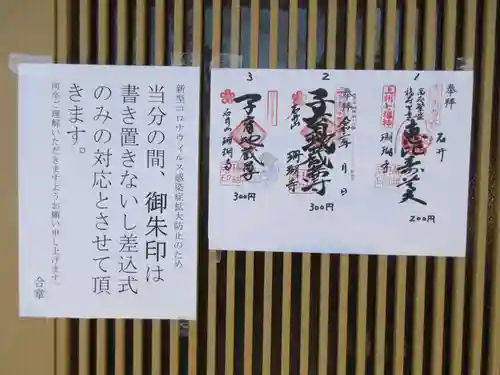 新型コロナウィルス感染症拡大防止のため
当分の間、御朱印は
書き置きないし差込式
のみの対応とさせて頂
きます。
何卒ご理解いただきますようお願い申し上げます。
合掌
1
奉拝
石井
珊瑚寺
200円
2
奉拝
年 月 日
珊瑚寺
300円
3
子育地蔵尊
石井山珊瑚寺
300円